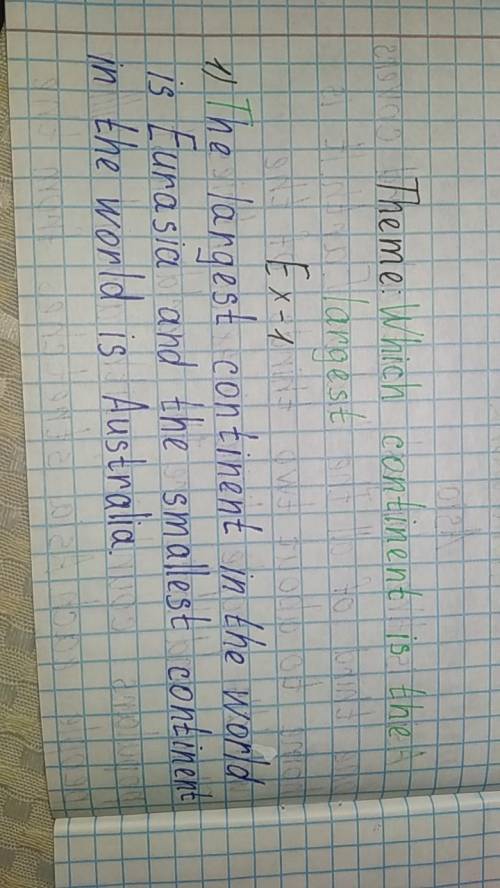 Theme: Which continent is the
largest
Ex-1
1) The largest continent in the world
is Eurasia and the smallest continent
in the world is Australia.